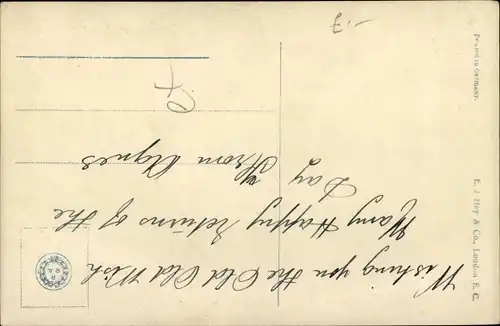 Wishing you the Old Old Wish
Many Happy Returns of the
Day From Agnes
E. J. Hey & Co., London E. C.
Printed in Germany.